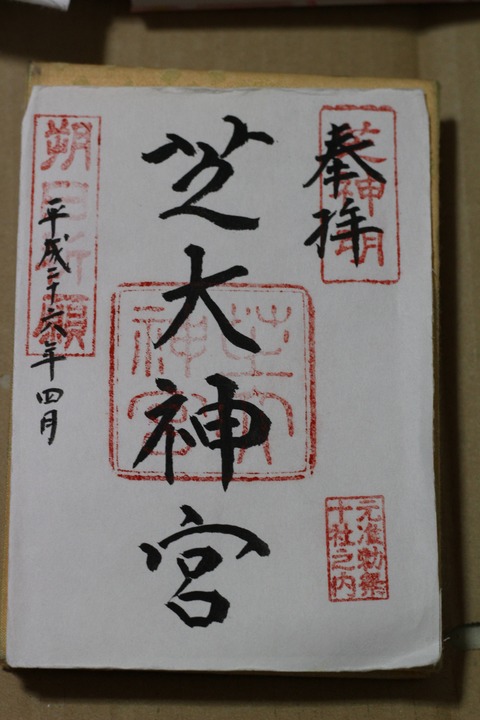 奉拝
芝神明
芝大神宮
芝大神宮
元准勅祭
十社之内
朔日祈願
平成二十六年四月